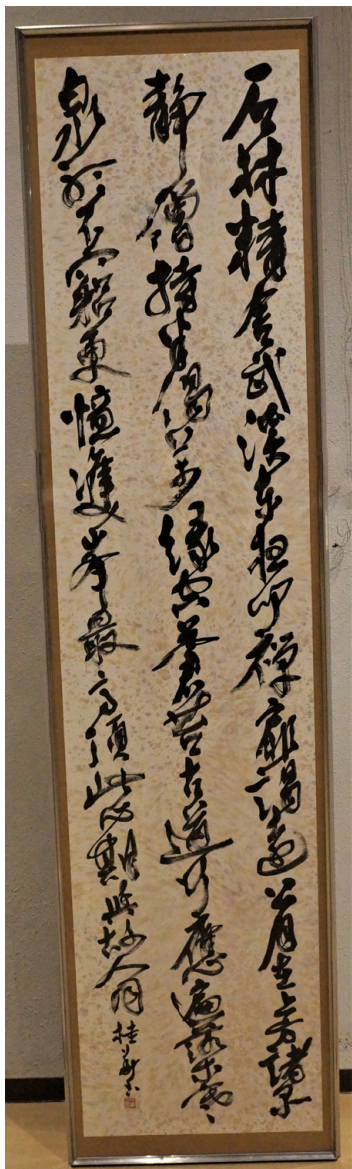 石林精舎武溪東夜叩禅扉謁遠公月在上方諸品
静僧持半偈万縁空蒼苔古道行應遍落木寒
泉聴不窮更憶雙峯最高頂此心期與故人同 桂